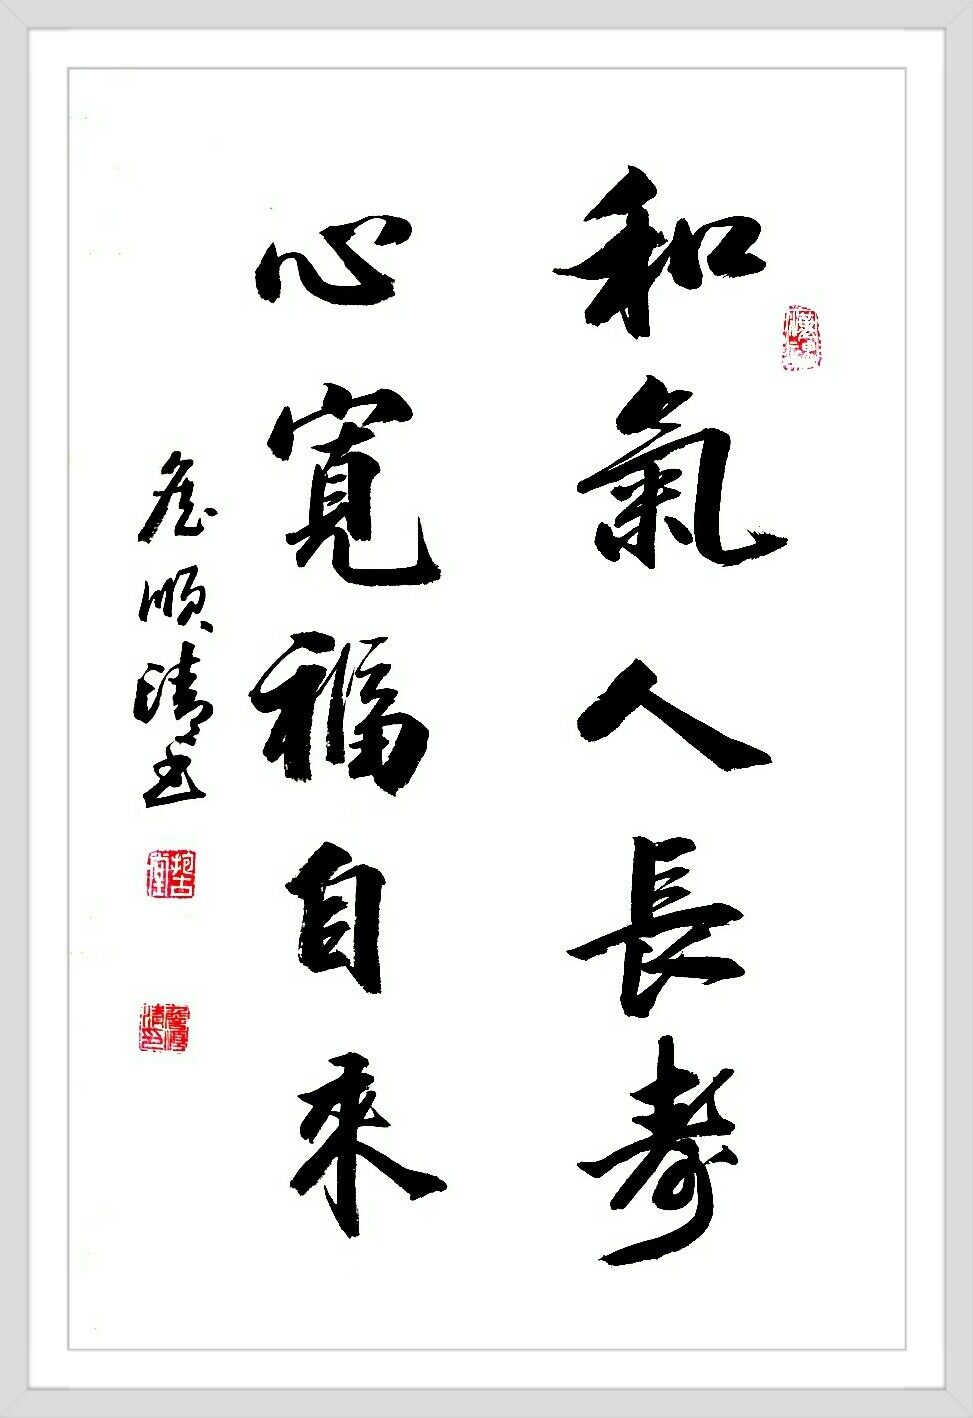 和氣人長壽
心寬福自来
詹順清書